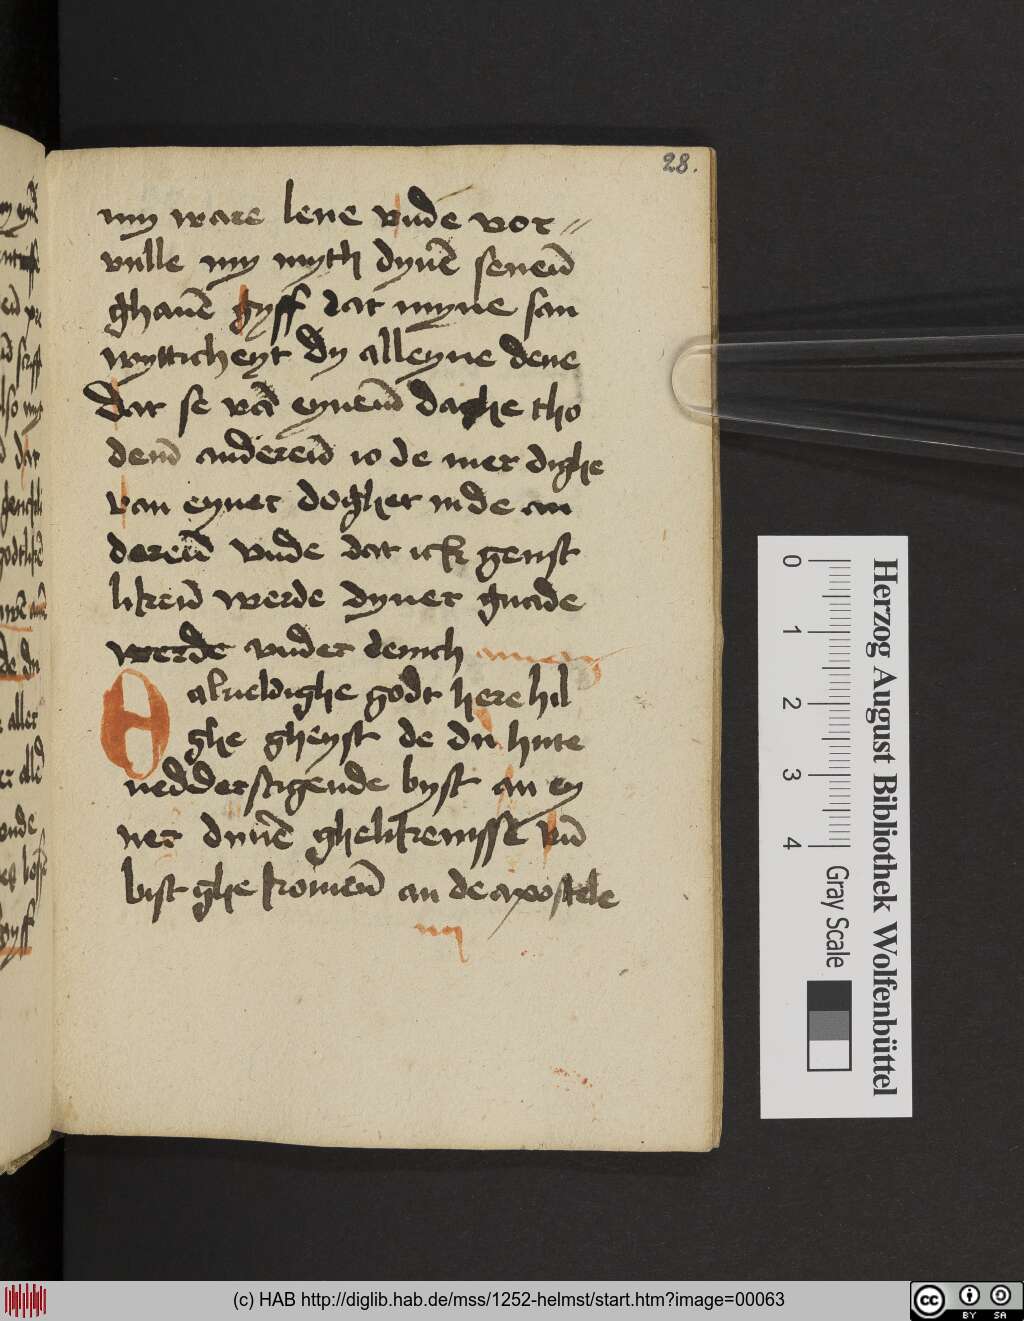 28.
my ware leue vnde vor⸗
vulle my myth dynē seueū
ghauē gyff dat myne san
wytticheyt dy alleyne dene
dat se vā eyneū daghe tho
denū andereū io de mer dighe
van eyner doghet in de an
dereū vnde dat ick genst
likeū werde dyner gnade
werde vnder denich amen
O alweldighe godt here hil
ghe gheyst de du hute
nedderstigende byst an ey
ner duuē ghelikenisse vū
bist ghe komeū an de apostele
0 1 2 3 4
Gray Scale
Herzog August Bibliothek Wolfenbüttel
(c) HAB http://diglib.hab.de/mss/1252-helmst/start.htm?image=00063
cc BY SA